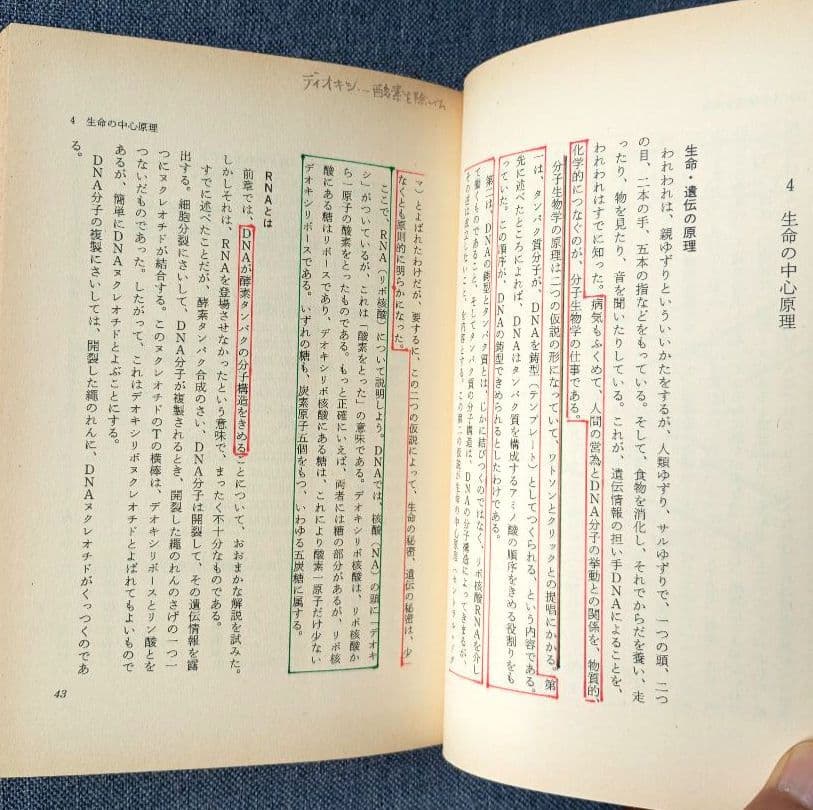 4 生命の中心原理
生命・遺伝の原理
われわれは、親ゆずりといういいかたをするが、人類ゆずり、サルゆずりで、一つの頭、二つ
の目、二本の手、五本の指などをもっている。そして、食物を消化し、それでからだを養い、走
ったり、物を見たり、音を聞いたりしている。これが、遺伝情報の担い手DNAによることを、
われわれはすでに知った。病気もふくめて、人間の営為とDNA分子の挙動との関係を、物質的、
化学的につなぐのが、分子生物学の仕事である。
分子生物学の原理は二つの仮説の形になっていて、ワトソンとクリックとの提唱にかかる。第
一は、タンパク質分子が、DNAを鋳型（テンプレート）としてつくられる、という内容である。
先に述べたところによれば、DNAはタンパク質を構成するアミノ酸の順序をきめる役割りをも
っていた。この順序が、DNAの鋳型できめられるとしたわけである。
第二は、DNAの鋳型とタンパク質とは、じかに結びつくのではなく、リボ核酸RNAを介し
て働くものであること、そしてタンパク質の分子構造は、DNAの分子構造によってきまるが、
その逆は成立しないこと、を内容とする。この第二の仮説が生命の中心原理（セントラル・ドグ
ディオキシ…酸素を除いた
4 生命の中心原理
マ）とよばれたわけだが、要するに、この二つの仮説によって、生命の秘密、遺伝の秘密は、少
なくとも原則的に明らかになった。
ここで、RNA（リボ核酸）について説明しよう。DNAでは、核酸（NA）の頭に「デオキ
シ」がついているが、これは「酸素をとった」の意味である。デオキシリボ核酸は、リボ核酸か
ら一原子の酸素をとったものである。もっと正確にいえば、両者には糖の部分があるが、リボ核
酸にある糖はリボースであり、デオキシリボ核酸にある糖は、これにより酸素一原子だけ少ない
デオキシリボースである。いずれの糖も、炭素原子五個をもつ、いわゆる五炭糖に属する。
RNAとは
前章では、DNAが酵素タンパクの分子構造をきめることについて、おおまかな解説を試みた。
しかしそれは、RNAを登場させなかったという意味で、まったく不十分なものである。
すでに述べたことだが、酵素タンパク合成のさい、DNA分子は開裂して、その遺伝情報を露
出する。細胞分裂にさいして、DNA分子が複製されるとき、開裂した縄のれんのさげの一つ一
つにヌクレオチドが結合する。このヌクレオチドのTの横棒は、デオキシリボースとリン酸とを
つないだものであった。したがって、これはデオキシリボヌクレオチドとよばれてもよいもので
あるが、簡単にDNAヌクレオチドとよぶことにする。
DNA分子の複製にさいしては、開裂した縄のれんに、DNAヌクレオチドがくっつくのであ
る。
43